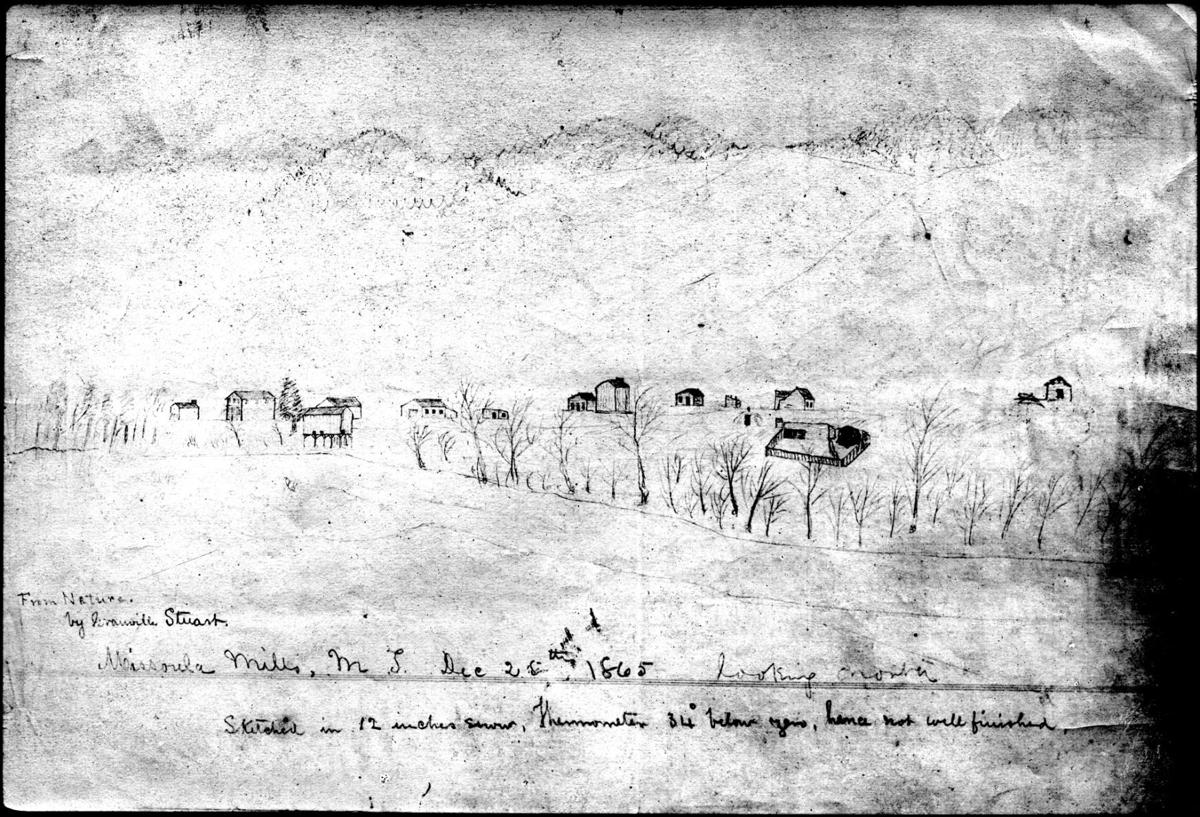 From Nature.
by Granville Stuart.
Missoula Mills, M T. Dec 25th, 1865 looking north
Sketched in 12 inches snow, Thermometer 34° below zero, hence not well finished.